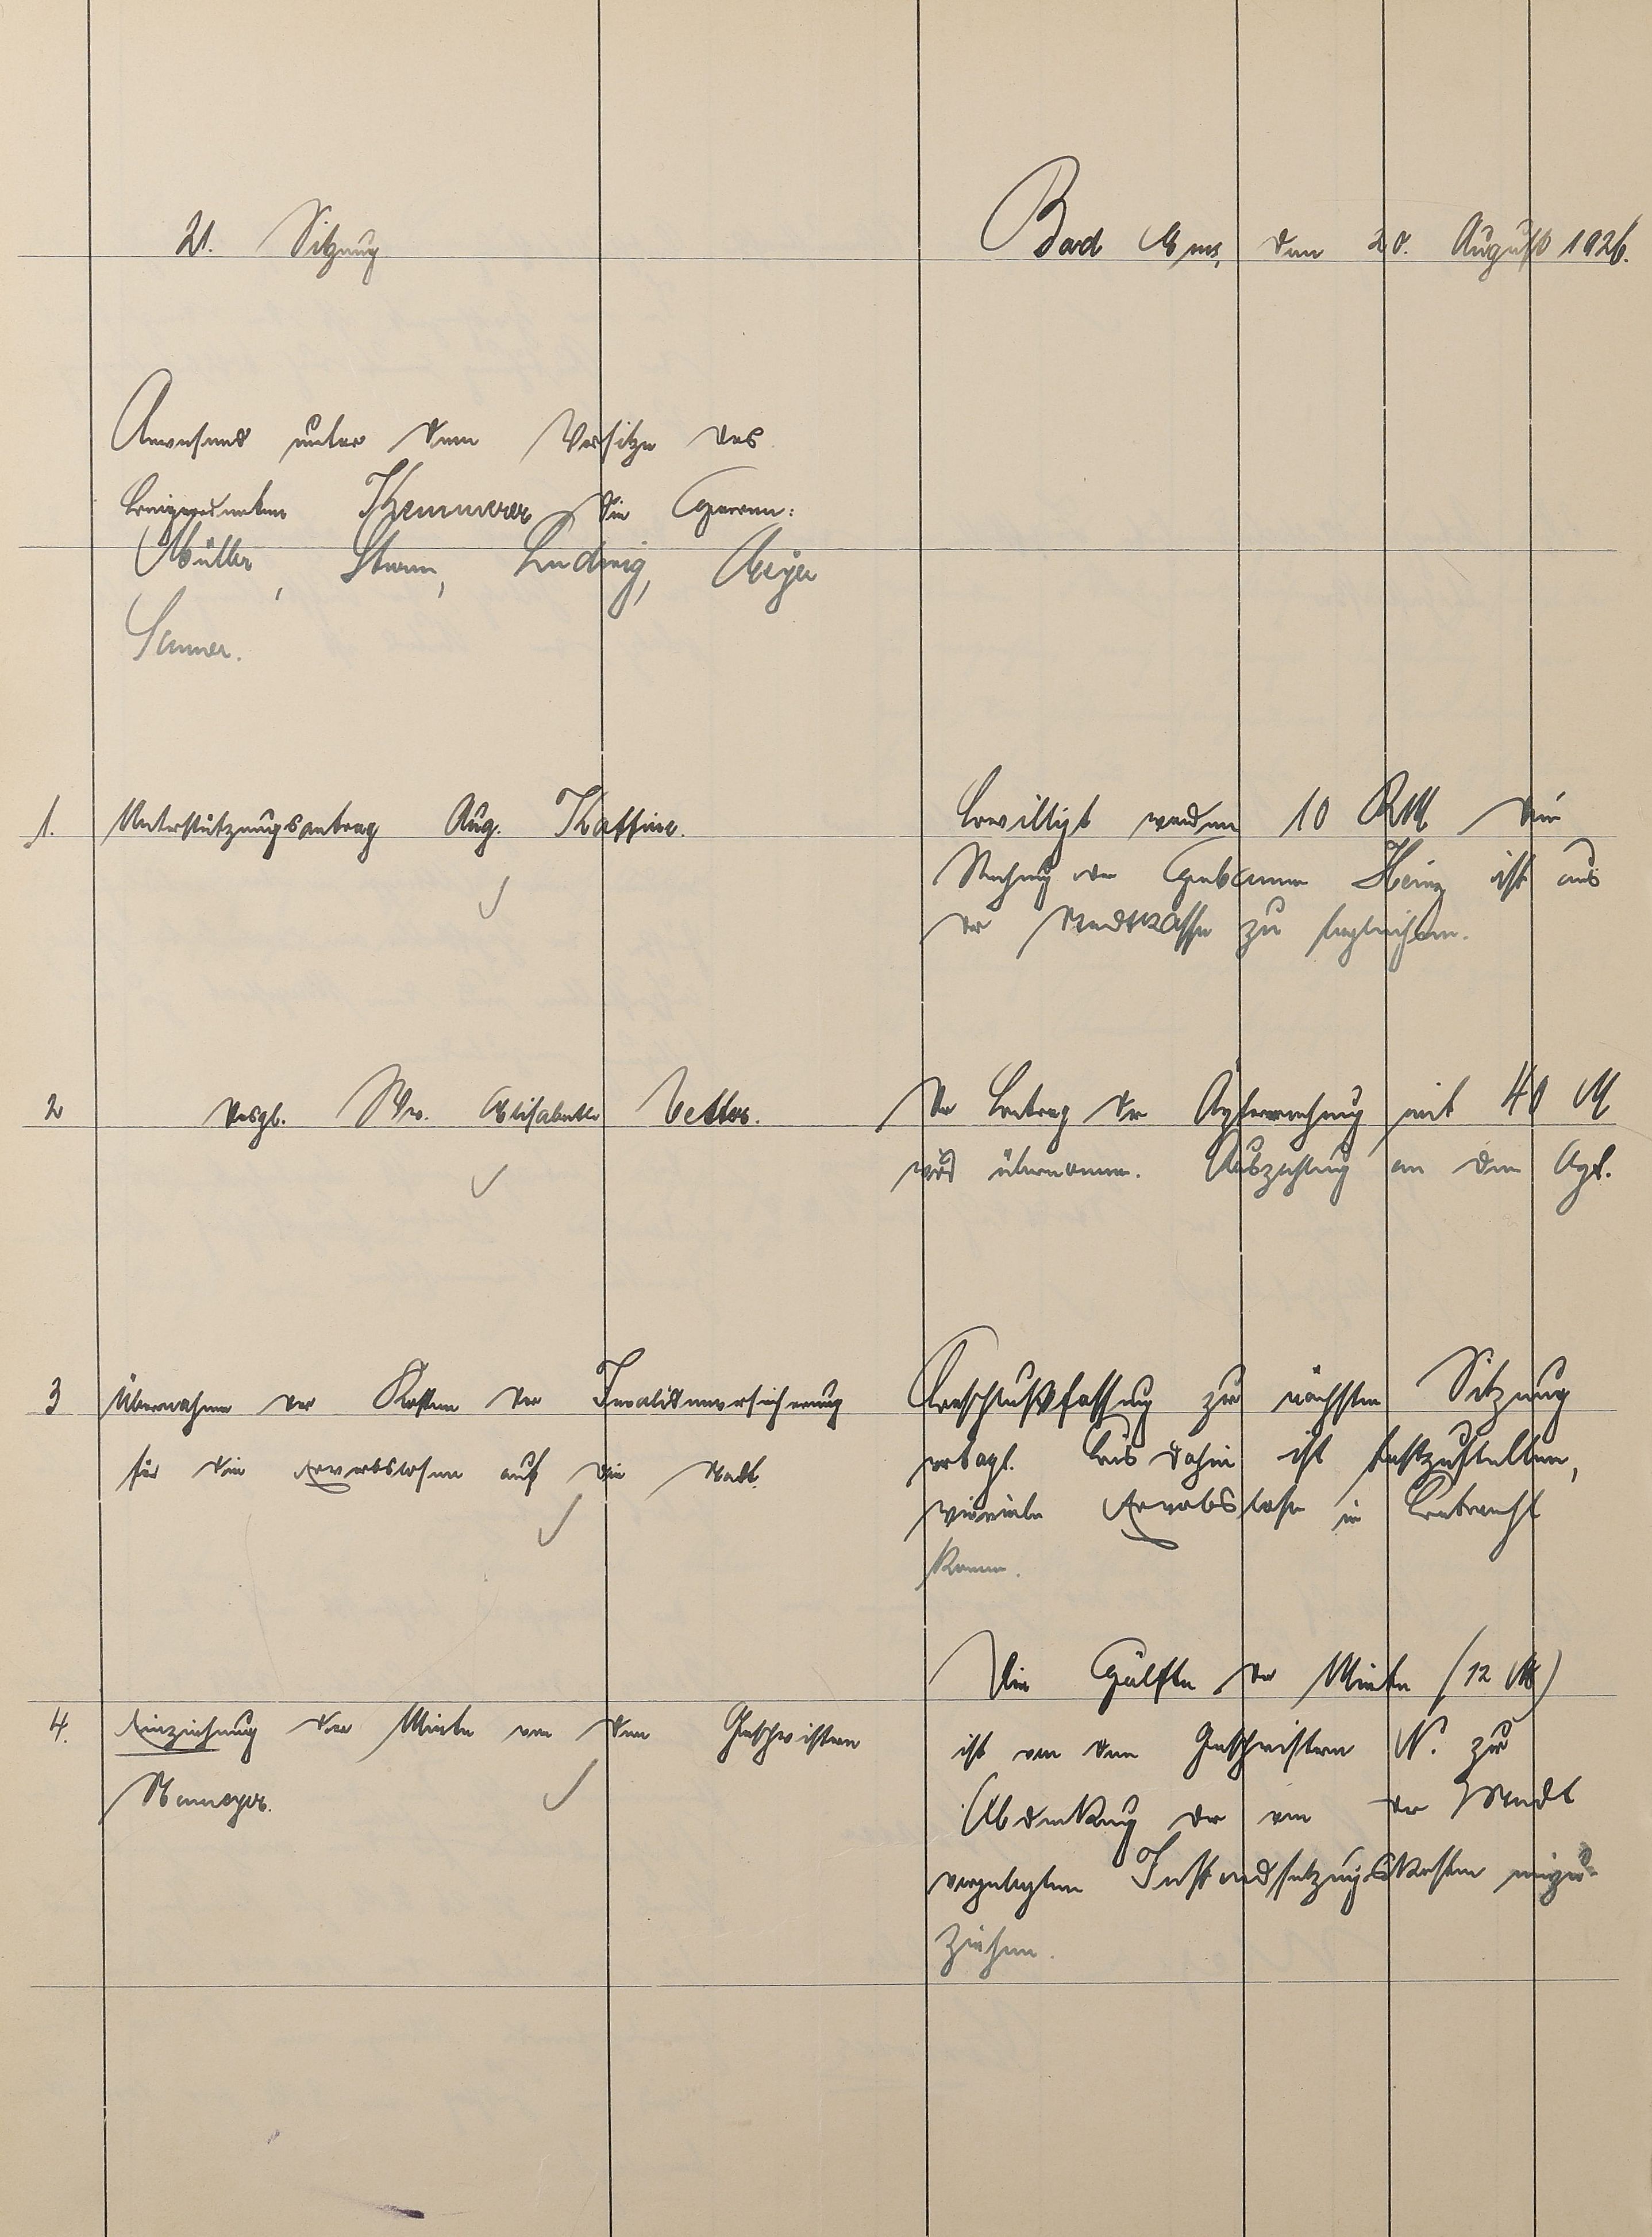 21. Sitzung
Bad Ems, den 20. August 1926.
Anwesend unter dem Vorsitze des
Beigeordneten Themmerer die Herren:
Müller, Sturm, Ludwig, Meyer
Sauer.
1. Unterstützungsantrag Aug. Kattine.
Bewilligt werden 10 RM die
Rechnung der Hebamme Heinz ist aus
der Stadtkasse zu begleichen.
2 desgl. Ww. Elisabeth Vetter.
Der Betrag der Arztrechnung mit 40 M
wird übernomm. Auszahlung an den
3 Übernahme der Kosten der Invalidenversicherung
für die Erwerbslosen auf die Stadt.
Beschlußfassung zur nächsten Sitzung
vertagt. Bis dahin ist festzustellen,
wieviele Erwerbslose in Betracht
komm.
4. Einziehung der Miete von den Geschwistern
Nemeyer.
Die Hälfte der Miete (12 M)
ist von den Geschwistern N. zur
Abdeckung der von der Stadt
vorgelegten Instandsetzungskosten einzu-
ziehen.